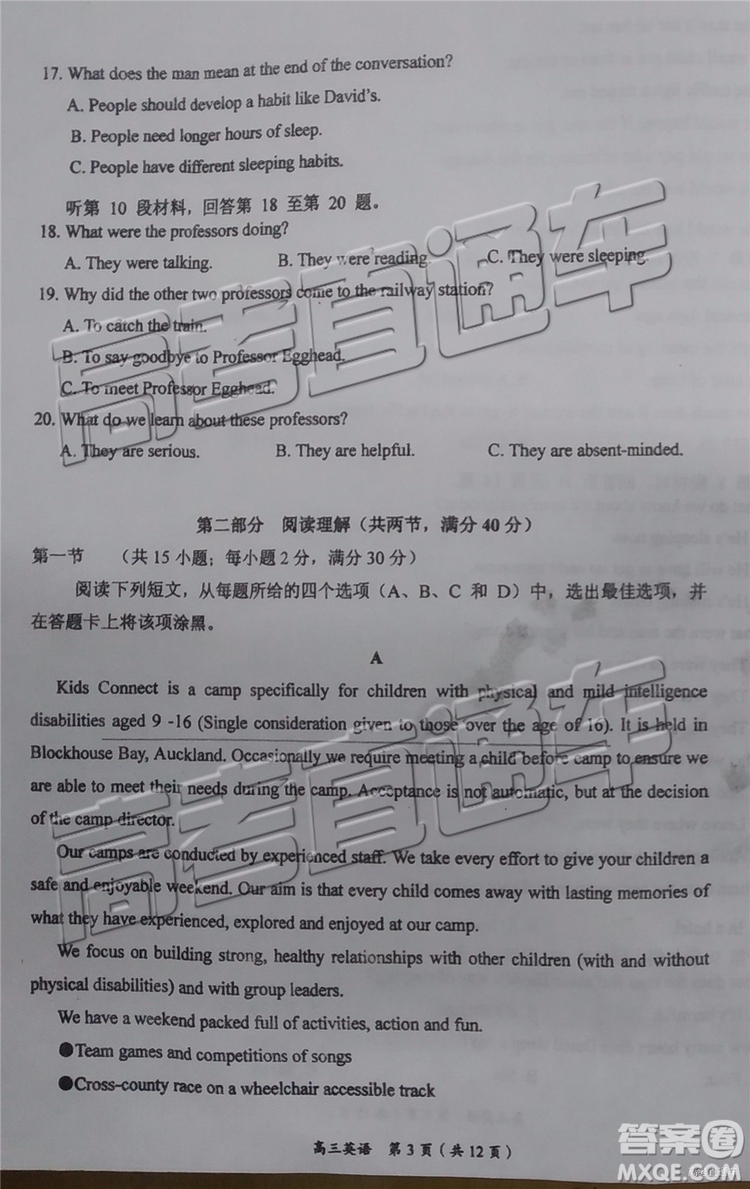 17. What does the man mean at the end of the conversation?
A. People should develop a habit like David's.
B. People need longer hours of sleep.
C. People have different sleeping habits.
听第 10 段材料，回答第 18 至第 20 题。
18. What were the professors doing?
A. They were talking. B. They were reading. C. They were sleeping.
19. Why did the other two professors come to the railway station?
A. To catch the train.
B. To say goodbye to Professor Egghead.
C. To meet Professor Egghead.
20. What do we learn about these professors?
A. They are serious. B. They are helpful. C. They are absent-minded.
第二部分 阅读理解（共两节，满分 40 分）
第一节 （共 15 小题；每小题 2 分，满分 30 分）
阅读下列短文，从每题所给的四个选项（A、B、C 和 D）中，选出最佳选项，并
在答题卡上将该项涂黑。
A
Kids Connect is a camp specifically for children with physical and mild intelligence
disabilities aged 9 -16 (Single consideration given to those over the age of 16). It is held in
Blockhouse Bay, Auckland. Occasionally we require meeting a child before camp to ensure we
are able to meet their needs during the camp. Acceptance is not automatic, but at the decision
of the camp director.
Our camps are conducted by experienced staff. We take every effort to give your children a
safe and enjoyable weekend. Our aim is that every child comes away with lasting memories of
what they have experienced, explored and enjoyed at our camp.
We focus on building strong, healthy relationships with other children (with and without
physical disabilities) and with group leaders.
We have a weekend packed full of activities, action and fun.
●Team games and competitions of songs
●Cross-county race on a wheelchair accessible track
高三英语 第 3 页（共 12 页）
高考直通车
高考直通车
答案圈
MXQE.COM